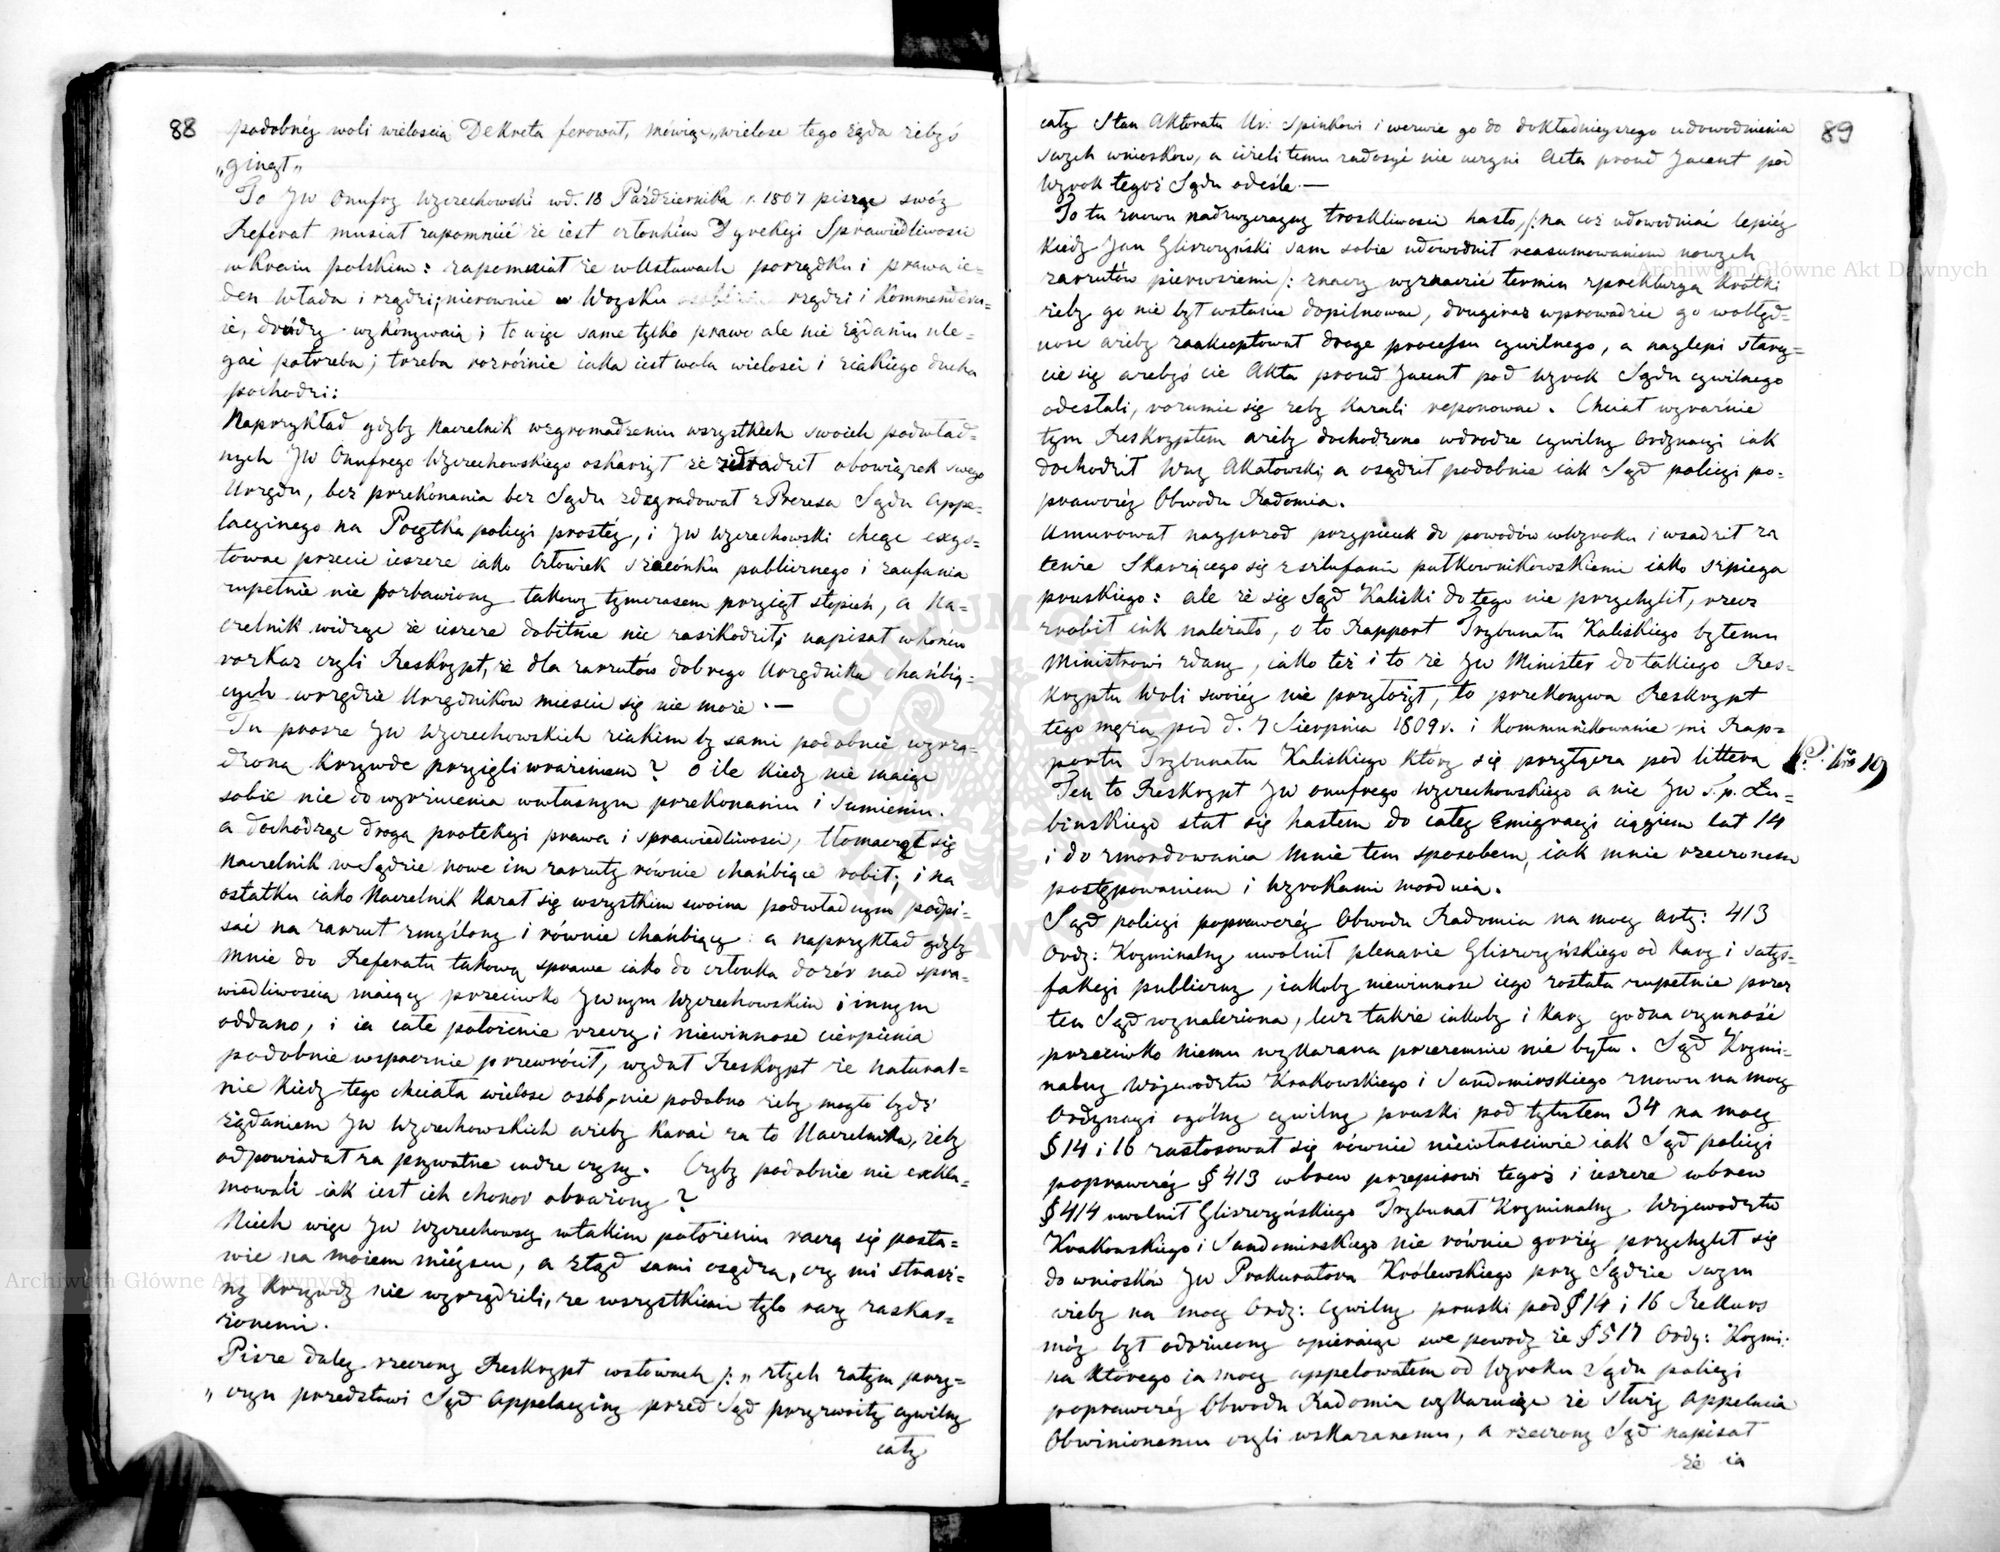 88
podobnéy woli wielością Dekreta ferował, mówiąc „wielose tego żąda żebyś
„ginął„
To JW Onufry Wyczechowski wd. 18 Października r. 1807 pisząc swóy
Referat musiał zapomnieć że iest członkiem Dyrekcyi Sprawiedliwosci
w Kraiu polskim: zapomniał że w Ustawach porządku i prawa ie-
den włada i rządzi; nierownie w Woysku rządzi i Kommendéru-
ie, drudzy wykonywaią; to więc same tylko prawo ale nie żądaniu ule-
gać potrzeba; trzeba rozróżnic iaka iest wola wielości i ziakiego ducha
pochodzi:
Naprzykład gdyby Naczelnik wzgromadzeniu wszystkich swoich podwład-
nych JW Onufrego Wyczechowskiego oskarżył że zdradził obowiązek swego
Urzędu, bez przekonania bez Sądu zdegradował z Prezesa Sądu Appe-
lacyinego na Początka policyi prostéy, i JW Wyczechowski chcąc exys-
towac przecie ieszcze iako Człowiek szacónku publicznego i zaufania
zupełnie nie pozbawiony takowy tymczasem przyiął stopień, a Na-
czelnik widząc że ieszcze dobitnie nie zaszkodził; napisał w koncu
rozkaz czyli Reskrypt, że dla zarzutów dobrego Urzędnika chańbią-
cych w rzędzie Urzędników miescic się nie może. —
Tu prosze JW Wyczechowskich ziakim by sami podobnie wyrzą-
dzoną krzywde przyięli wrażeniem? o ile kiedy nie maiąc
sobie nie do wyrzucenia w własnym przekonaniu i sumieniu.
a dochodząc drogą protekcyi prawa i sprawiedliwosci, tłomaczył się
Naczelnik w Sądzie nowe im zarzuty równie chańbiące robił; i na
ostatku iako Naczelnik kazał się wszystkim swoim podwładnym podpi-
sać na zarzut zmyślony i równie chańbiący: a naprzykład gdyby
mnie do Referatu takową sprawe iako do członka dozór nad spra-
wiedliwoscią maiący przeciwko Jwnym Wyczechowskim i innym
oddano, i ia całe położenie rzeczy i niewinnosc cierpienia
podobnie wspacznie przewrócił, wydał Reskrypt że natural-
nie kiedy tego chciała wielose osób, nie podobno żeby mogło bydź
żądaniem JW Wyczechowskich ażeby karać za to Naczelnika, żeby
odpowiadał za prywatne cudze czyny. Czyby podobnie nie exkla-
mowali iak iest ich chonor obrażony?
Niech więc JW Wyczechowscy w takim położeniu raczą się posta-
wic na moiem mieyscu, a ztąd sami osądzą, czy mi straszi-
ny krzywdy nie wyrządzili, ze wszystkiemi tylo razy zaskar-
żonemi.
Pisze daley rzeczony Reskrypt wsłowach /: „ztych zatym przy-
„czyn przedstawi Sąd Appelacyiny przed Sąd przyzwoity cywilny
cały
89
cały Stan Aktoratu Ur: Spinkowi i wezwie go do dokładnieyszego udowodnienia
swych wniosków, a ieżeli temu zadosyć nie uczyni Acta prout Jacent pod
Wyrok tegoż Sądu odeśle. —
To tu znowu nadzwyczayny troskliwosci hasło, /: na coż udowodniać lepiéy
kiedy Jan Gliszczyński sam sobie udowodnił reasumowaniem nowych
zarzutów pierwszemi /: znaczy wyznaczić termin zpreklurzyą krótki
żeby go nie był wstanie dopilnowac, drugiraz wprowadzic go wobłęd-
nosc ażeby zaakceptował droge processu cywilnego, a naylepi staray-
cie się ażebyście Akta prout Jacent pod wyrok Sądu cywilnego
odesłali, rozumie się zeby kazali reponowac. Chciał wyraźnie
tym Reskryptem ażeby dochodzono wdrodze cywilny Ordynacyi iak
dochodził Wny Akatowski; a osądził podobnie iak Sąd policyi po-
prawczéy Obwodu Radomia.
Umurował nayprzod przypieuk do powodów wWyroku i wsadził za
tenże Skarżącego się z szlufami pułkownikowskiemi iako szpiega
pruskiego: ale że się Sąd Kaliski do tego nie przychylił, rzecz
zrobił iak należało, o to Rapport Trybunału Kaliskiego bytemu
Ministrowi zdany, iako też i to że JW Minister do takiego Res-
kryptu Woli swoiéy nie przyłożył, to przekonywa Reskrypt
tego męża pod d. 7 Sierpnia 1809 r. i kommunikowanie mi Rap-
portu Trybunału Kaliskiego który się przyłącza pod littera
19
Ten to Reskrypt JW Onufrego Wyczechowskiego a nie JW S.p. Łu-
binskiego stał się hasłem do całey Emigracyi ciągiem lat 14
i do zmordowania mnie tem sposobem, iak mnie rzeczonem
postępowaniem i Wyrokami mordują.
Sąd policyi poprawczéy Obwodu Radomia na mocy arty: 413
Ordy: Kryminalny uwolnił plenarie Gliszczyńskiego od kary i satys-
fakcyi publiczny, iakoby niewinnosc iego została zupełnie przez
ten Sąd wynaleziona, lecz także iakoby i kary godna czynność
przeciwko niemu wykazana przezemnie nie była. Sąd Krymi-
nalny Województw Krakowskiego i Sandomirskiego znowu na mocy
Ordynacyi ogólny cywilny pruski pod tytułem 34 na mocy
§ 14 i 16 zastosował się równie niewłasciwie iak Sąd policyi
poprawczéy § 413 wbrew przepisowi tegoż i ieszcze wbrew
§ 414 uwolnił Gliszczyńskiego Trybunał Kryminalny. Województw
Krakowskiego i Sandomirskiego nie równie gorzéy przychylił się
do wniosków JW Prokuratora Królewskiego przy Sądzie swym
ażeby na mocy Ordy: cywilny pruski pod § 14 i 16 Rekurs
móy był odrzucony opieraiąc swe powody że § 517 Ordy: Krymi:
na którego ia mocy appelowałem od Wyroku Sądu policyi
poprawczéy Obwodu Radomia wykazuie że służy Appelacia
Obwinionemu czyli wskazanemu, a rzeczony Sąd napisał
że ia
Archiwum Główne Akt Dawnych
Archiwum Główne Akt Dawnych